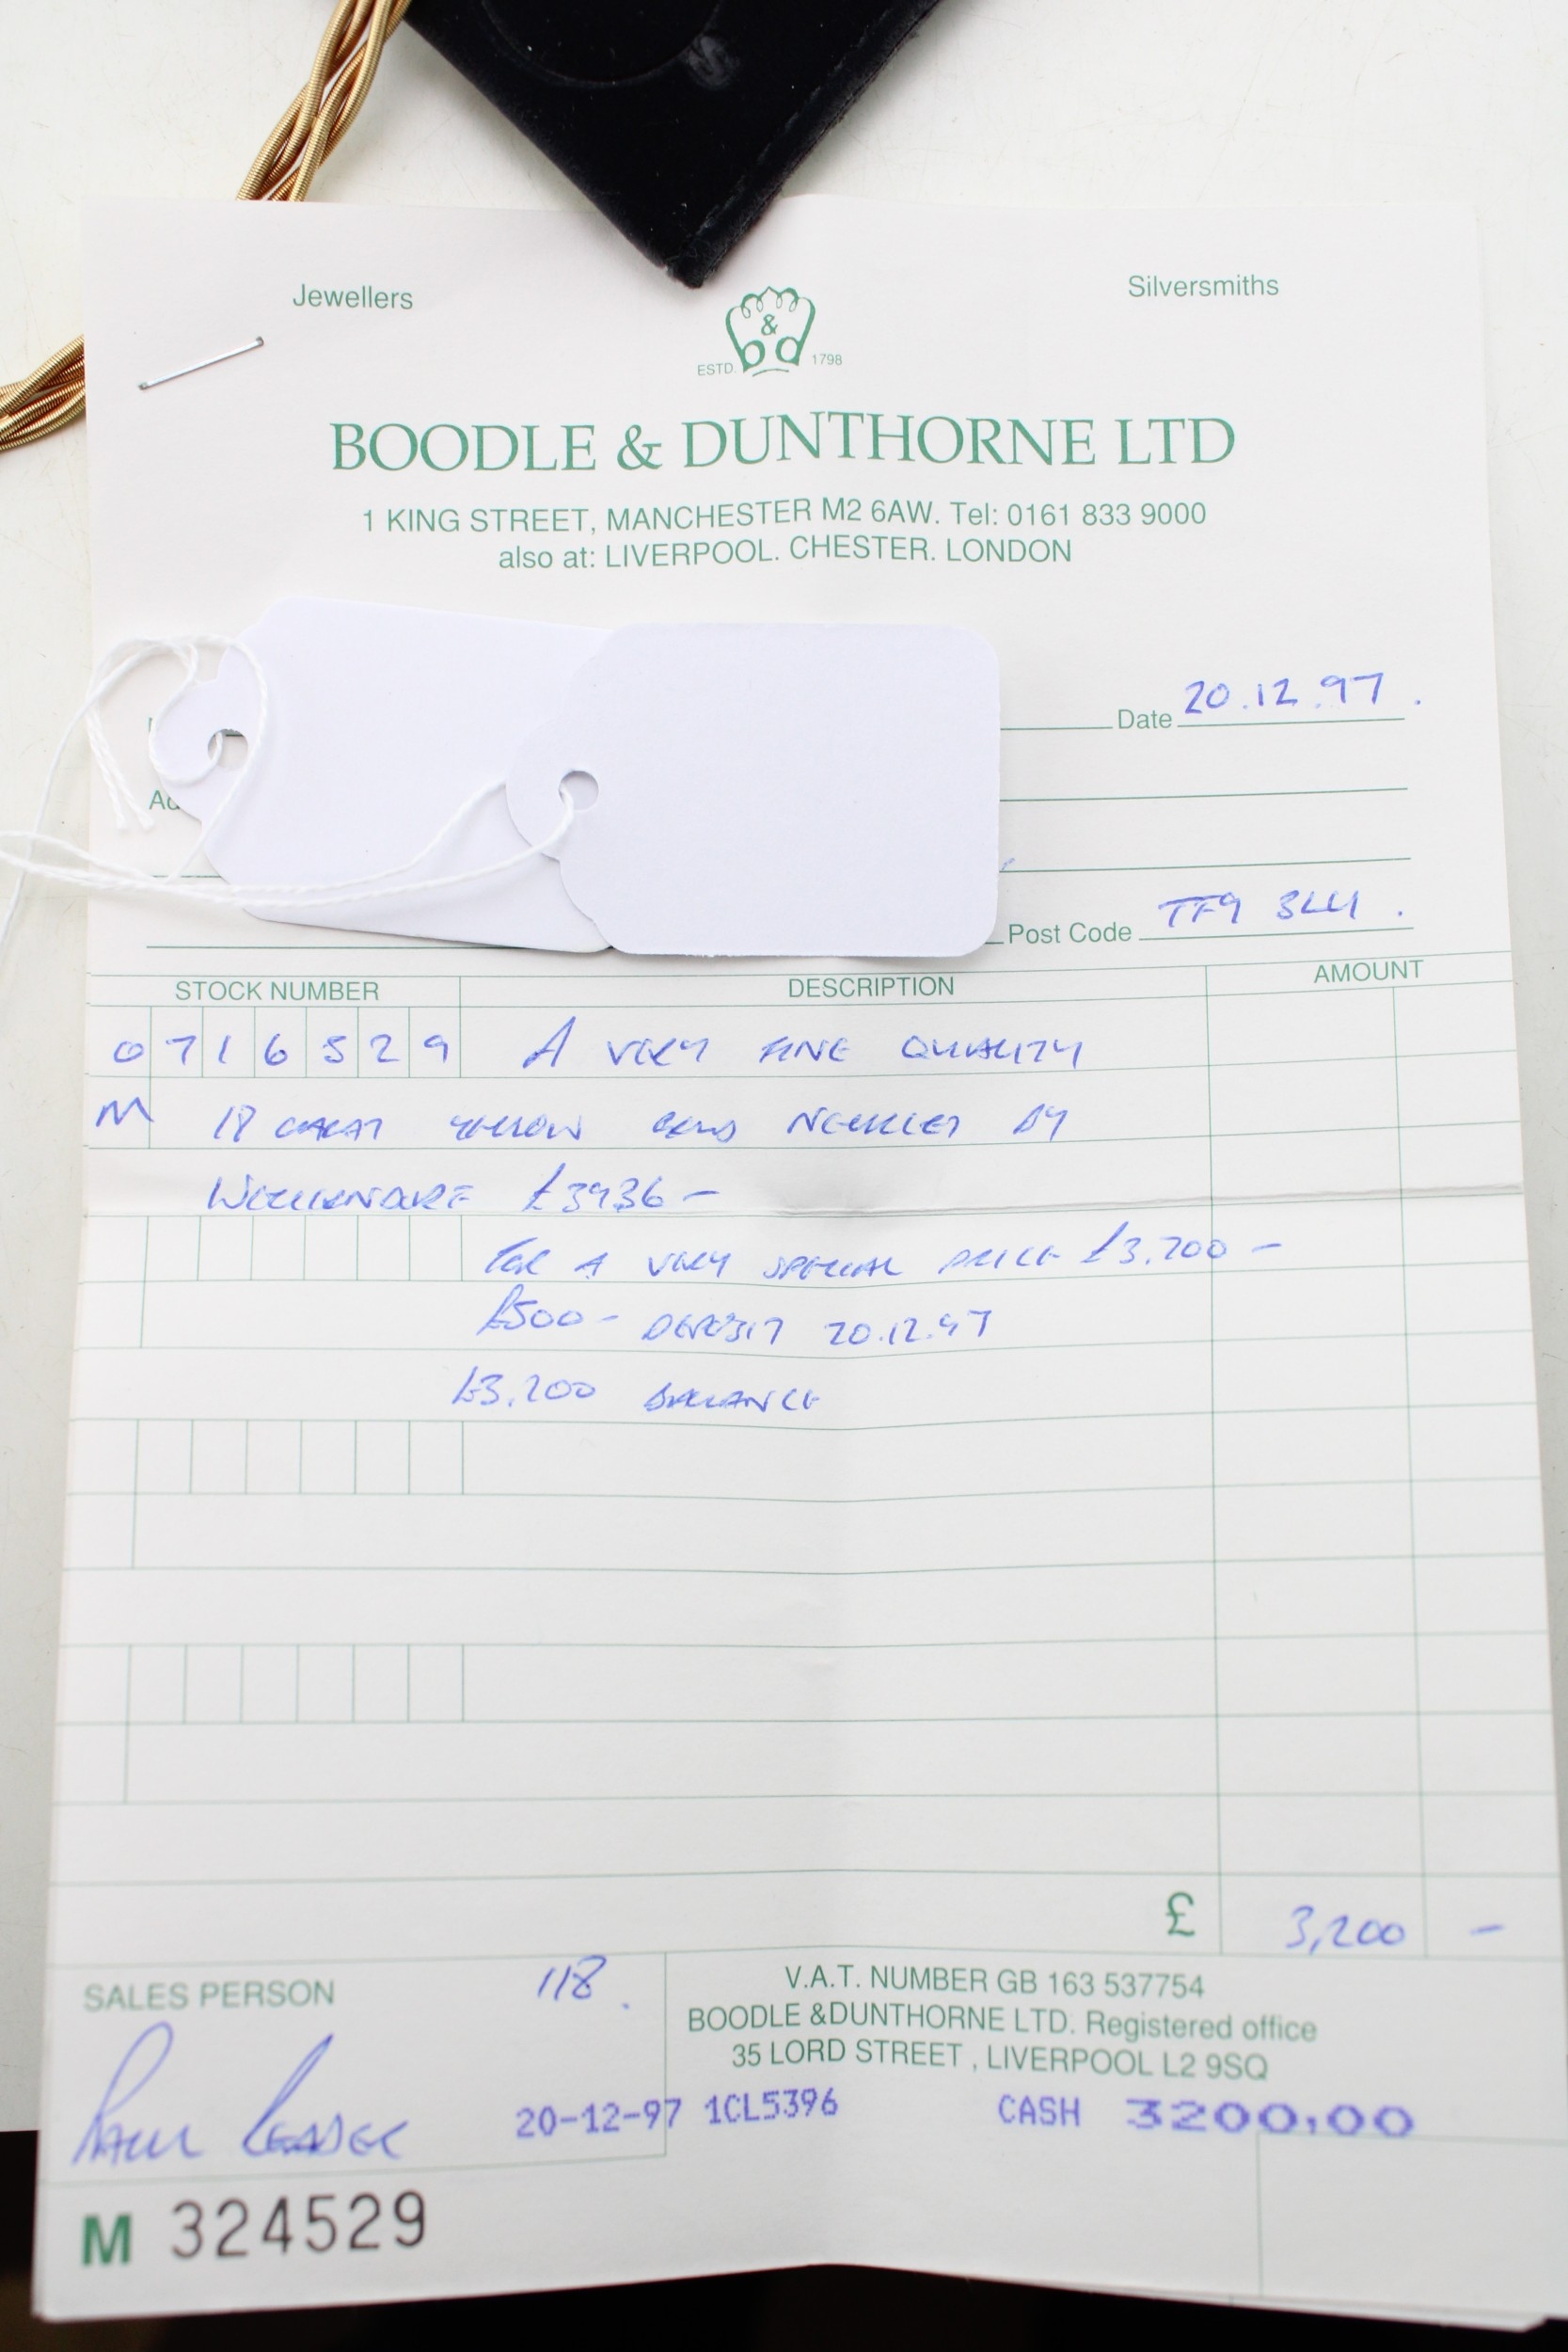 Jewellers
Silversmiths
&
bd
ESTD. 1798
BOODLE & DUNTHORNE LTD
1 KING STREET, MANCHESTER M2 6AW. Tel: 0161 833 9000
also at: LIVERPOOL. CHESTER. LONDON
Date 20.12.97.
Ad
Post Code TF9 3LU.
STOCK NUMBER DESCRIPTION AMOUNT
0716529 A VERY FINE QUALITY
M 18 CARAT YELLOW GOLD NECKLET BY
£3936-
FOR A VERY SPECIAL PRICE £3.700-
£500- DEPOSIT 20.12.97
£3.200 BALANCE
£ 3,200 -
SALES PERSON 118.
V.A.T. NUMBER GB 163 537754
BOODLE &DUNTHORNE LTD. Registered office
35 LORD STREET, LIVERPOOL L2 9SQ
20-12-97 1CL5396 CASH 3200.00
M 324529